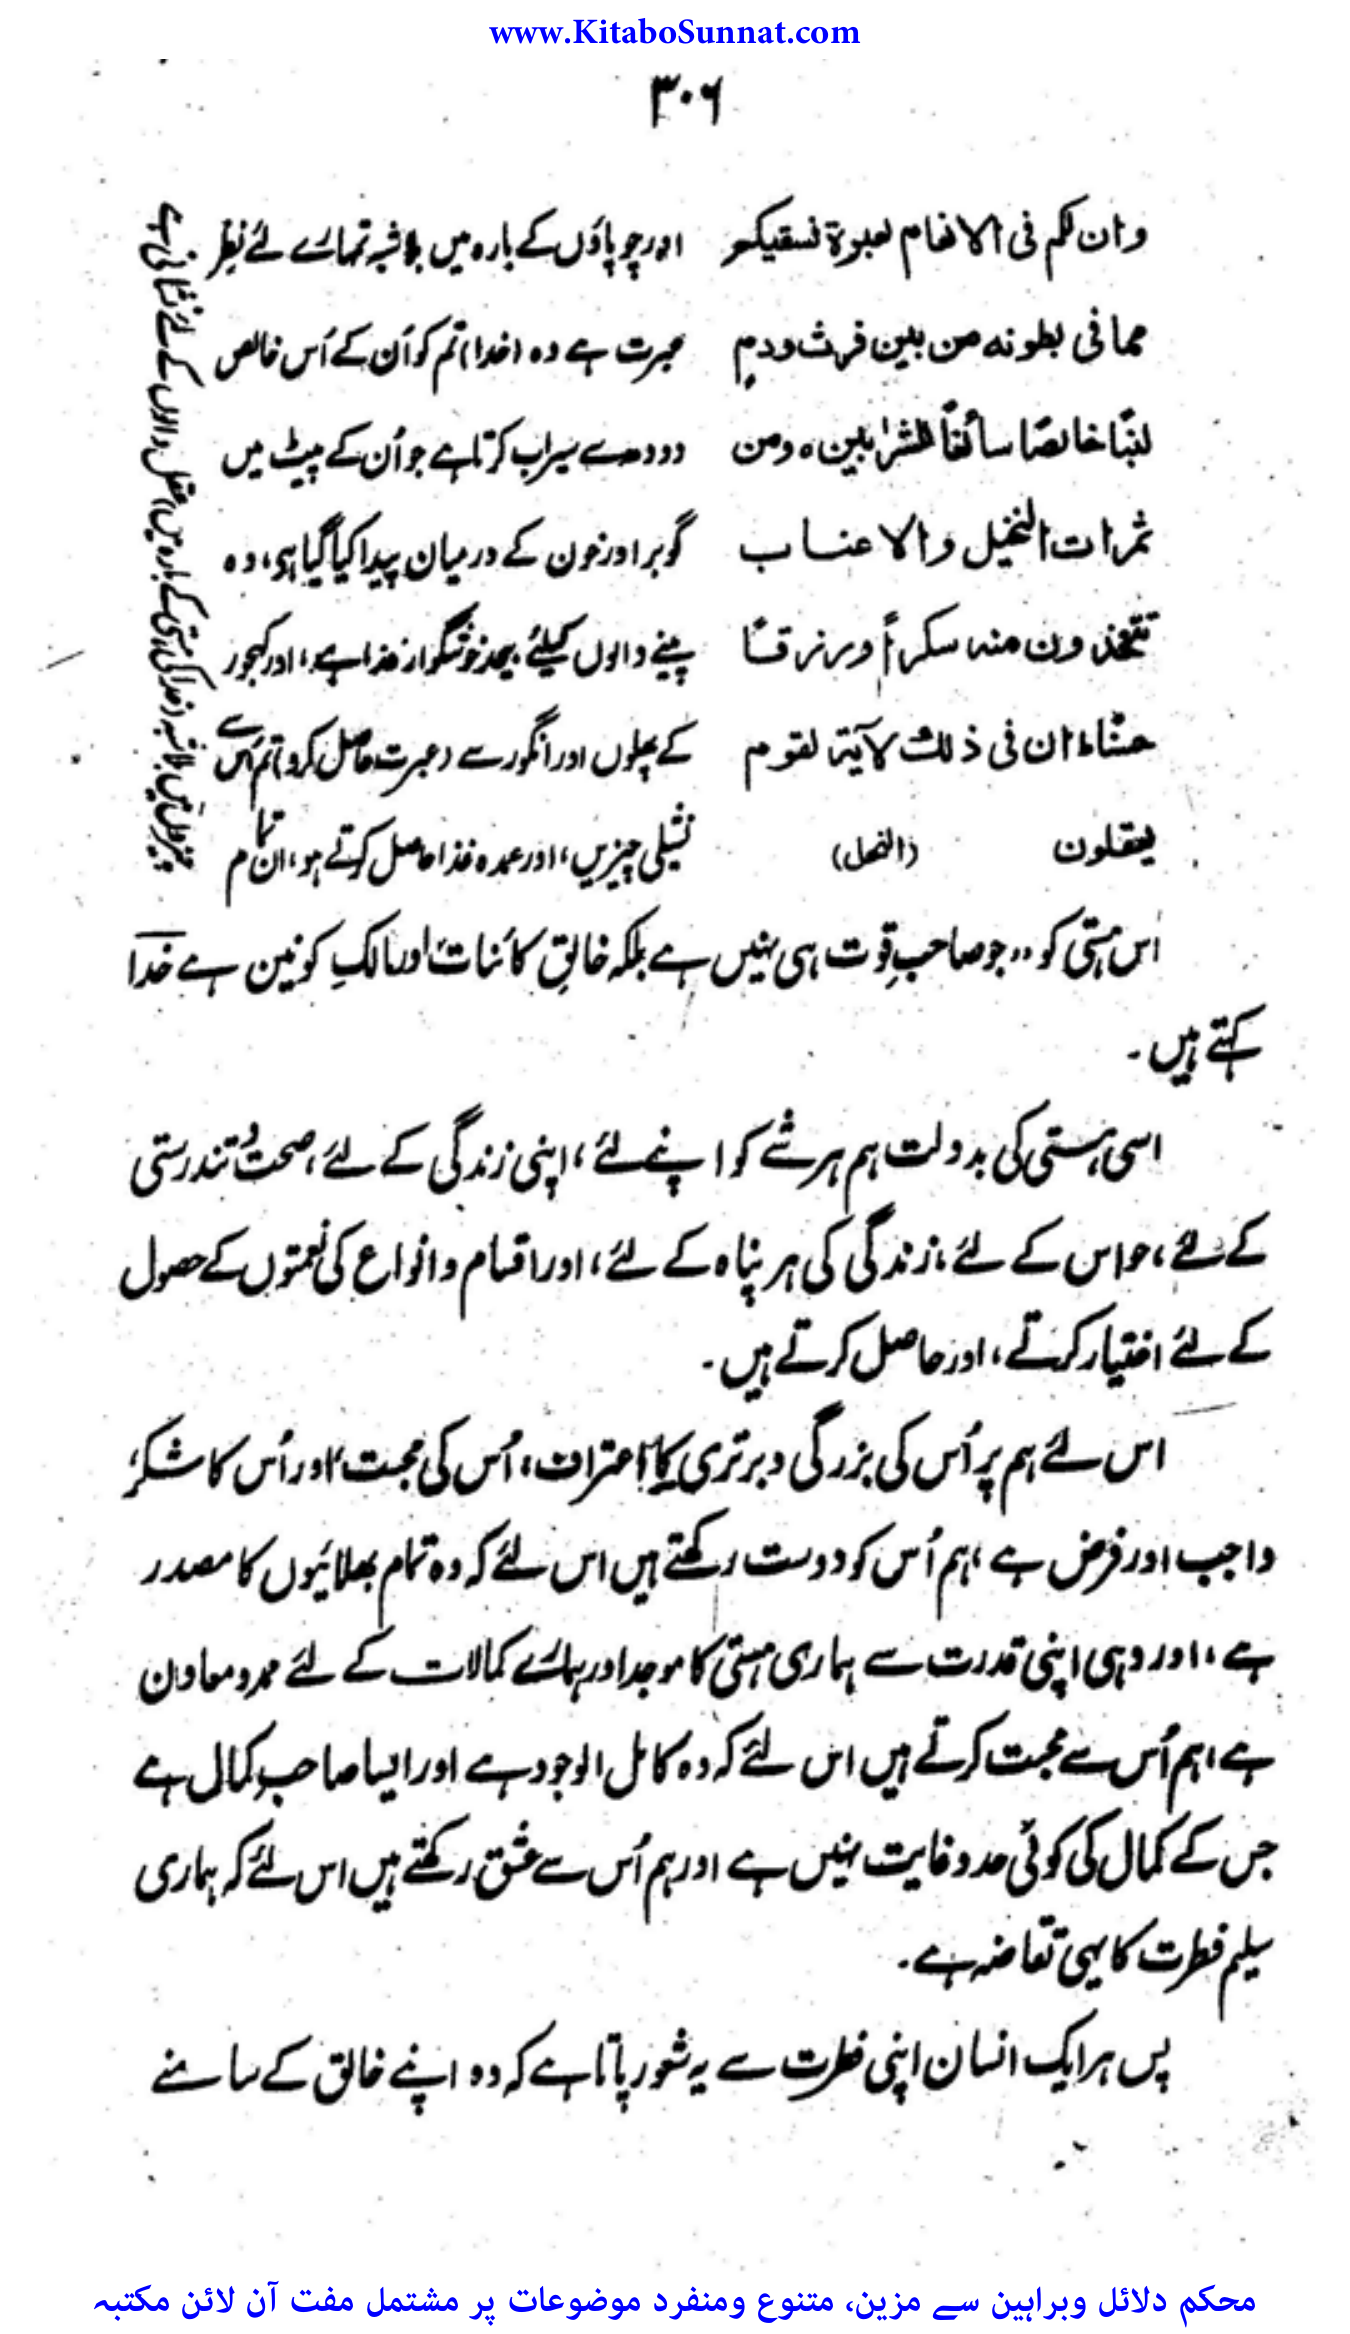 www.KitaboSunnat.com
۳۰۶
وان لکم فی الانعام لعبرة نسقیکم
مما فی بطونه من بین فرث ودم
لبنًا خالصًا سائغًا للشرابین ه ومن
ثمرات النخیل والاعناب
تتخذون منه سکراً ورزقًا
حسنًا ط ان فی ذلك لآیة لقوم
یعقلون (النحل)
اور چوپاؤں کے بارہ میں بلاشبہ تمہارے لئے بنظر
عبرت ہے وہ (خدا) تم کو اُن کے اُس خالص
دودھ سے سیراب کرتا ہے جو اُن کے پیٹ میں
گوبر اور خون کے درمیان پیدا کیا گیا ہی، وہ
پینے والوں کیلئے بیحد خوشگوار غذا ہے، اور کھجور
کے پھلوں اور انگور سے (عبرت حاصل کرو) تم اُس سے
نشیلی چیزیں، اور عمدہ غذا حاصل کرتے ہو، ان تمام
چیزوں میں بلاشبہ (خدا کی ہستی کے بارہ میں) عقل والوں کے لئے نشانی ہے
اس ہستی کو ،، جو صاحبِ قوت ہی نہیں ہے بلکہ خالقِ کائنات اور مالکِ کونین ہے خدا
کہتے ہیں۔
اسی ہستی کی بدولت ہم ہر شے کو اپنے لئے، اپنی زندگی کے لئے، صحت و تندرستی
کے لئے، حواس کے لئے، زندگی کی ہر پناہ کے لئے، اور اقسام و انواع کی نعمتوں کے حصول
کے لئے اختیار کرتے، اور حاصل کرتے ہیں۔
اس لئے ہم پر اُس کی بزرگی و برتری کا اعتراف، اُس کی محبت، اور اُس کا شکر،
واجب اور فرض ہے، ہم اُس کو دوست رکھتے ہیں اس لئے کہ وہ تمام بھلائیوں کا مصدر
ہے، اور وہی اپنی قدرت سے ہماری ہستی کا موجد اور ہمارے کمالات کے لئے ممد و معاون
ہے، ہم اُس سے محبت کرتے ہیں اس لئے کہ وہ کامل الوجود ہے اور ایسا صاحبِ کمال ہے
جس کے کمال کی کوئی حد و غایت نہیں ہے اور ہم اُس سے عشق رکھتے ہیں اس لئے کہ ہماری
سلیم فطرت کا یہی تقاضہ ہے۔
پس ہر ایک انسان اپنی فطرت سے یہ شعور پاتا ہے کہ وہ اپنے خالق کے سامنے
محکم دلائل وبراہین سے مزین، متنوع ومنفرد موضوعات پر مشتمل مفت آن لائن مکتبہ